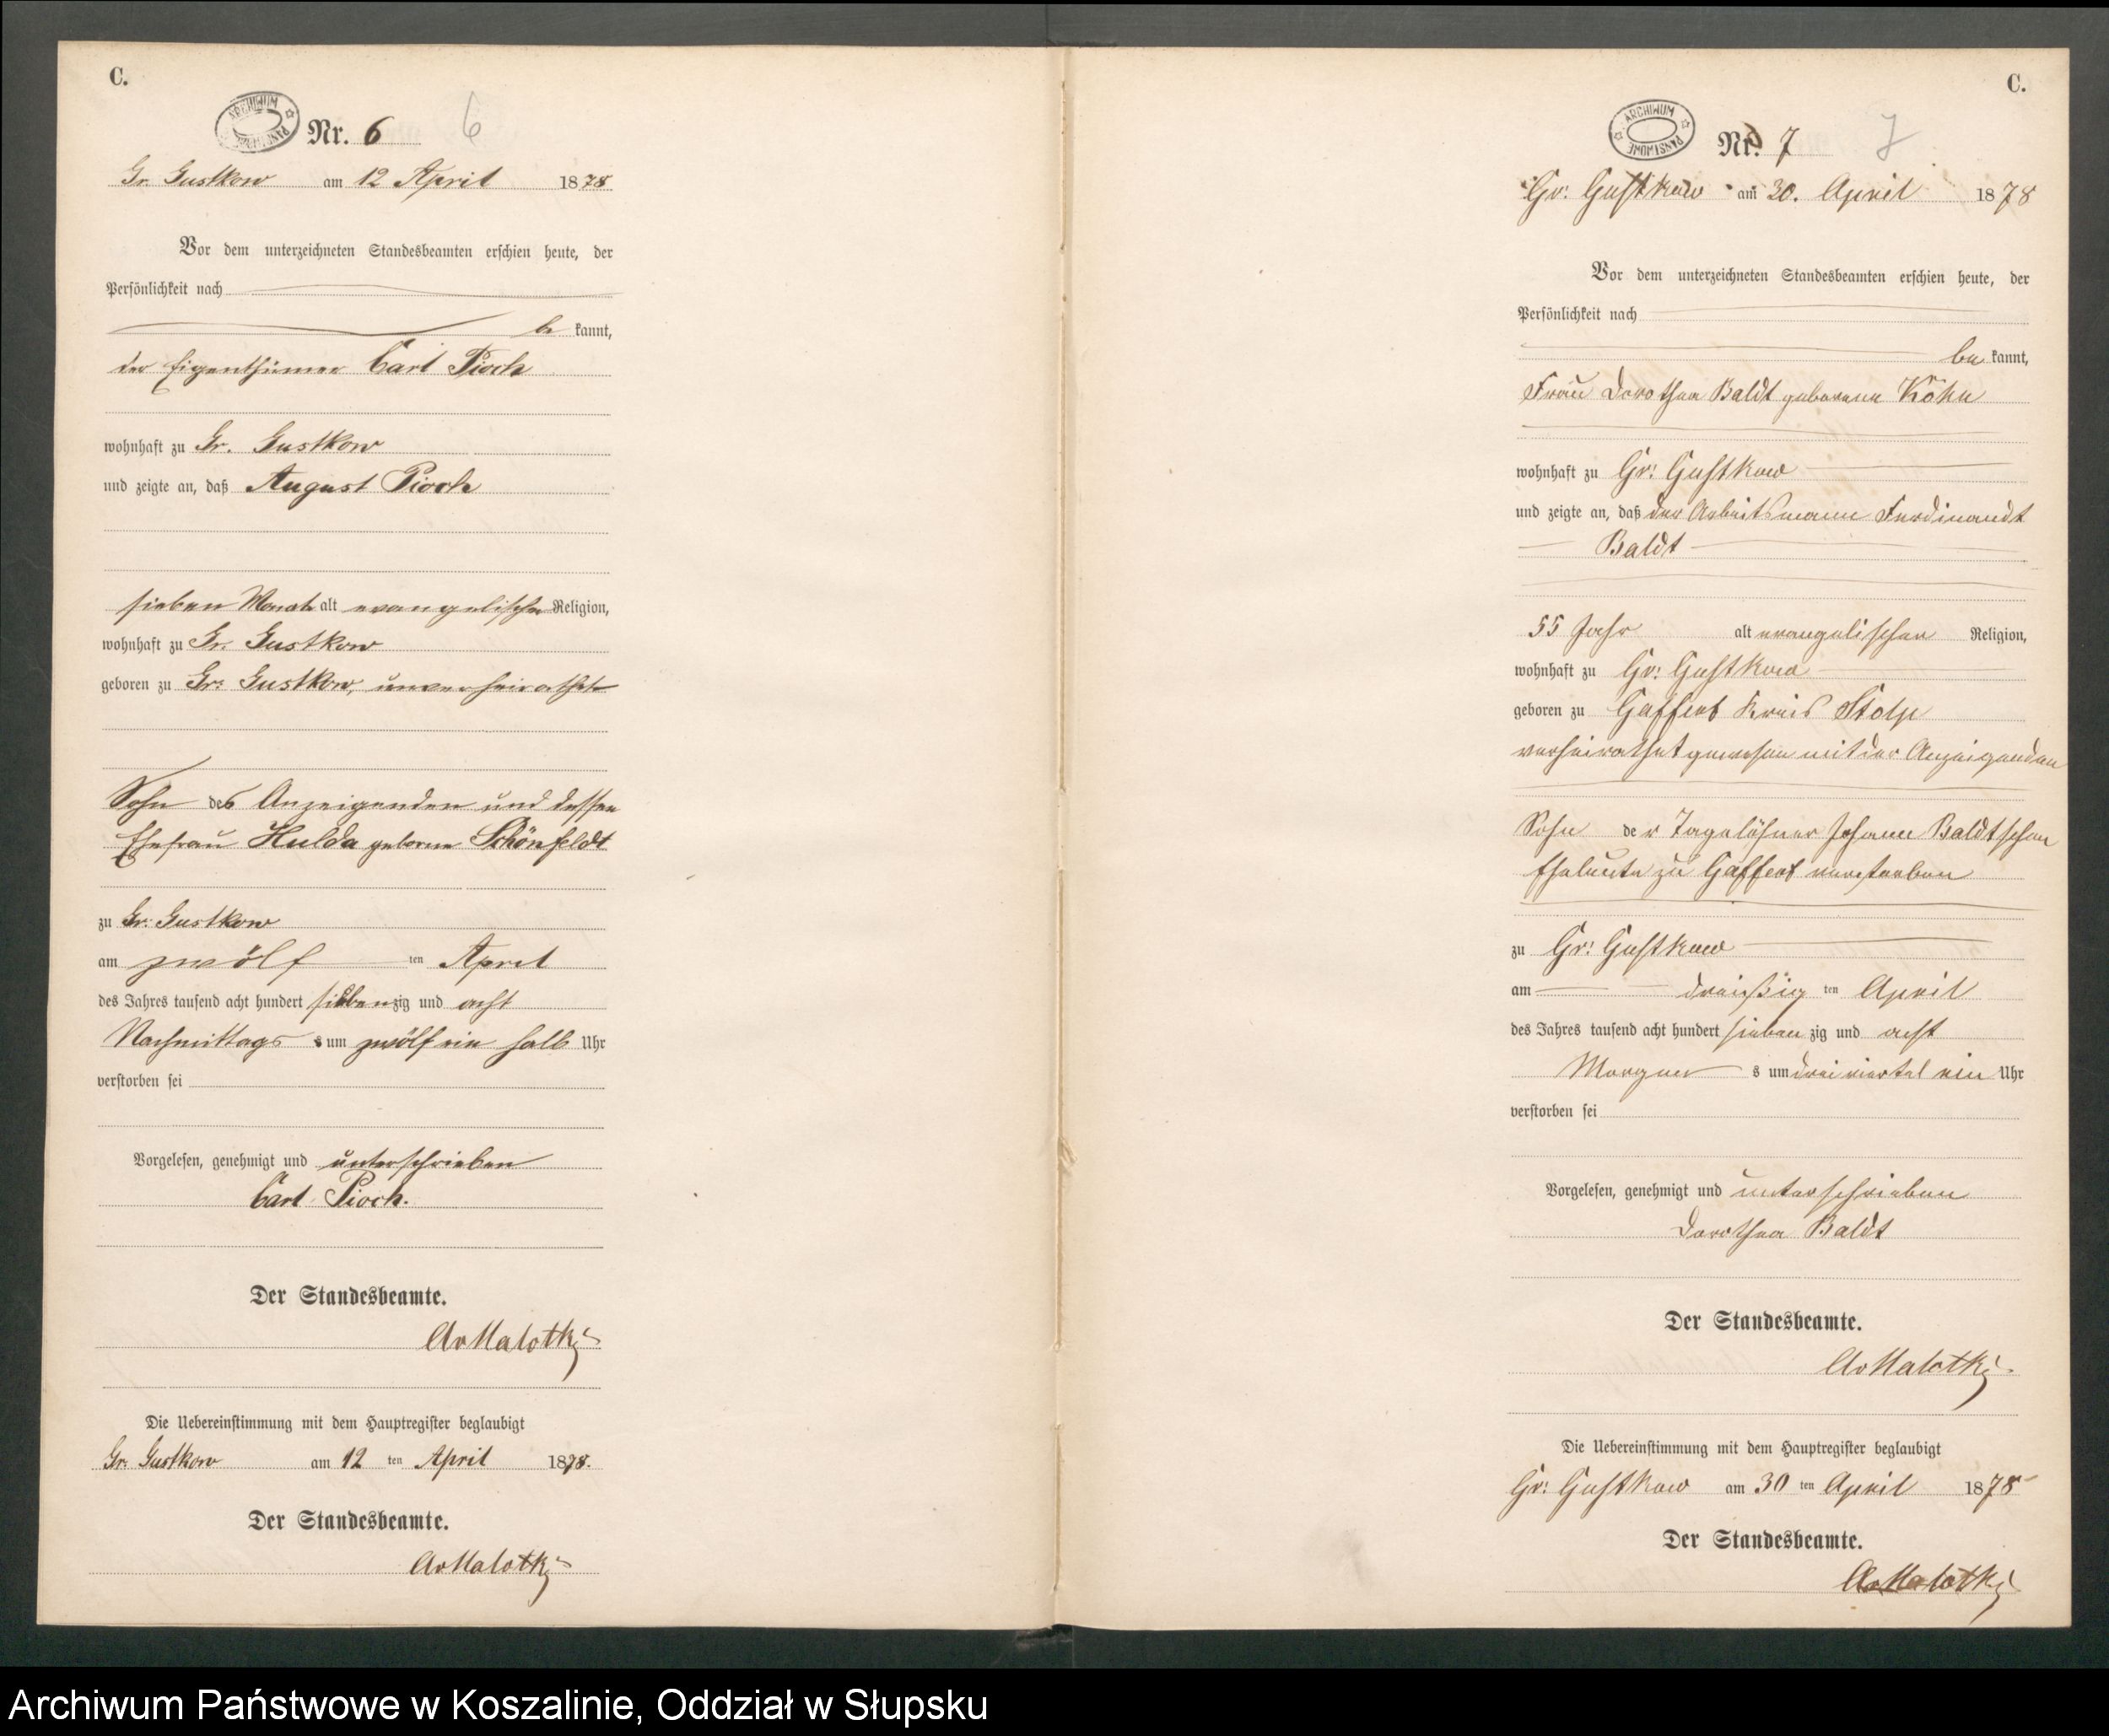 C.
ARCHIWUM PAŃSTWOWE
Nr. 6
6
Gr. Gustkow am 12 April 1878
Vor dem unterzeichneten Standesbeamten erschien heute, der
Persönlichkeit nach
be kannt,
der Eigenthümer Carl Pioch
wohnhaft zu Gr. Gustkow
und zeigte an, daß August Pioch
sieben Monate alt evangelischer Religion,
wohnhaft zu Gr. Gustkow
geboren zu Gr. Gustkow, unverheirathet
Sohn des Anzeigenden und dessen
Ehefrau Hulda geborne Schönfeldt
zu Gr. Gustkow
am zwölf ten April
des Jahres tausend acht hundert siebenzig und acht
Nachmittags um zwölf ein halb Uhr
verstorben sei
Vorgelesen, genehmigt und unterschrieben
Carl Pioch.
Der Standesbeamte.
AvMalotki
Die Uebereinstimmung mit dem Hauptregister beglaubigt
Gr. Gustkow am 12 ten April 1878.
Der Standesbeamte.
AvMalotki
C.
ARCHIWUM PAŃSTWOWE
Nr. 7
7
Gr: Gustkow am 30. April 1878
Vor dem unterzeichneten Standesbeamten erschien heute, der
Persönlichkeit nach
be kannt,
Frau Dorothea Baldt geborene Köhn
wohnhaft zu Gr: Gustkow
und zeigte an, daß der Arbeitsmann Ferdinandt
Baldt
55 Jahr alt evangelischer Religion,
wohnhaft zu Gr: Gustkow
geboren zu Gaffert Kreis Stolp
verheirathet gewesen mit der Anzeigenden
Sohn der Tagelöhner Johann Baldtschen
Eheleute zu Gaffert verstorben
zu Gr: Gustkow
am dreißig ten April
des Jahres tausend acht hundert sieben zig und acht
Morgen s um dreiviertel ein Uhr
verstorben sei
Vorgelesen, genehmigt und unterschrieben
Dorothea Baldt
Der Standesbeamte.
AvMalotki
Die Uebereinstimmung mit dem Hauptregister beglaubigt
Gr: Gustkow am 30 ten April 1878
Der Standesbeamte.
AvMalotki
Archiwum Państwowe w Koszalinie, Oddział w Słupsku